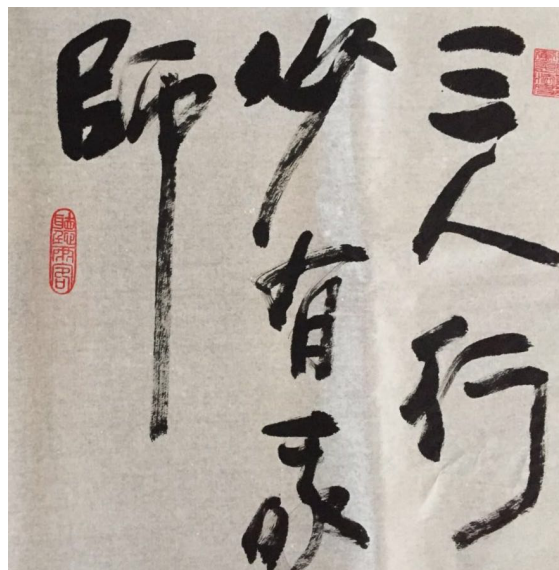 三人行
必有我
師